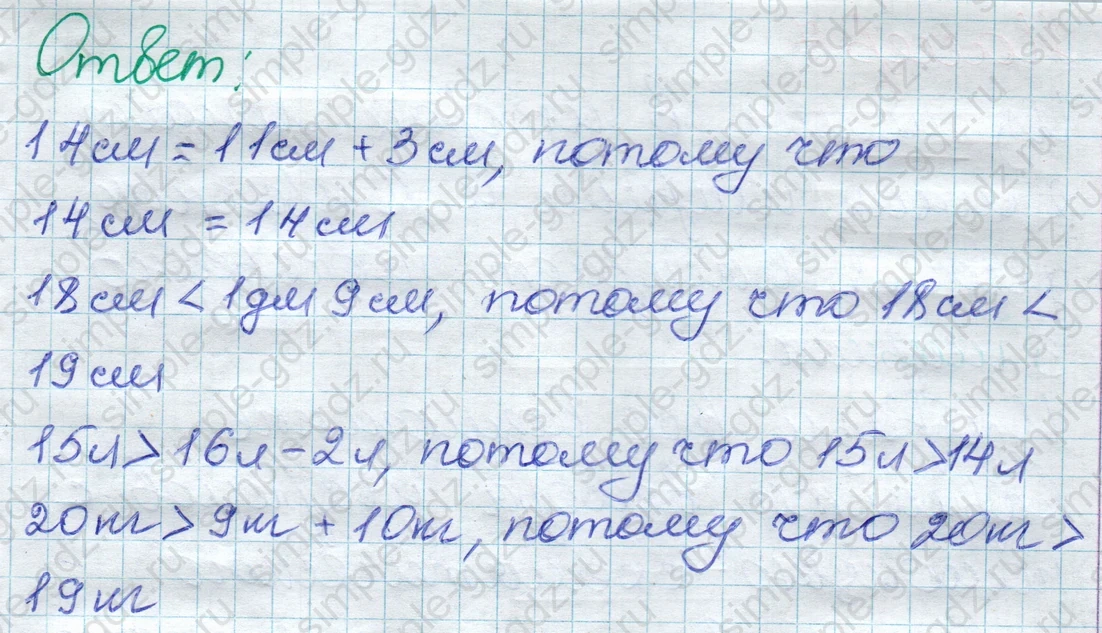 Ответ:
14см = 11см + 3см, потому что
14см = 14см
18см < 1дм 9см, потому что 18см <
19см
15л > 16л - 2л, потому что 15л > 14л
20кг > 9кг + 10кг, потому что 20кг >
19кг
simple-gdz.ru